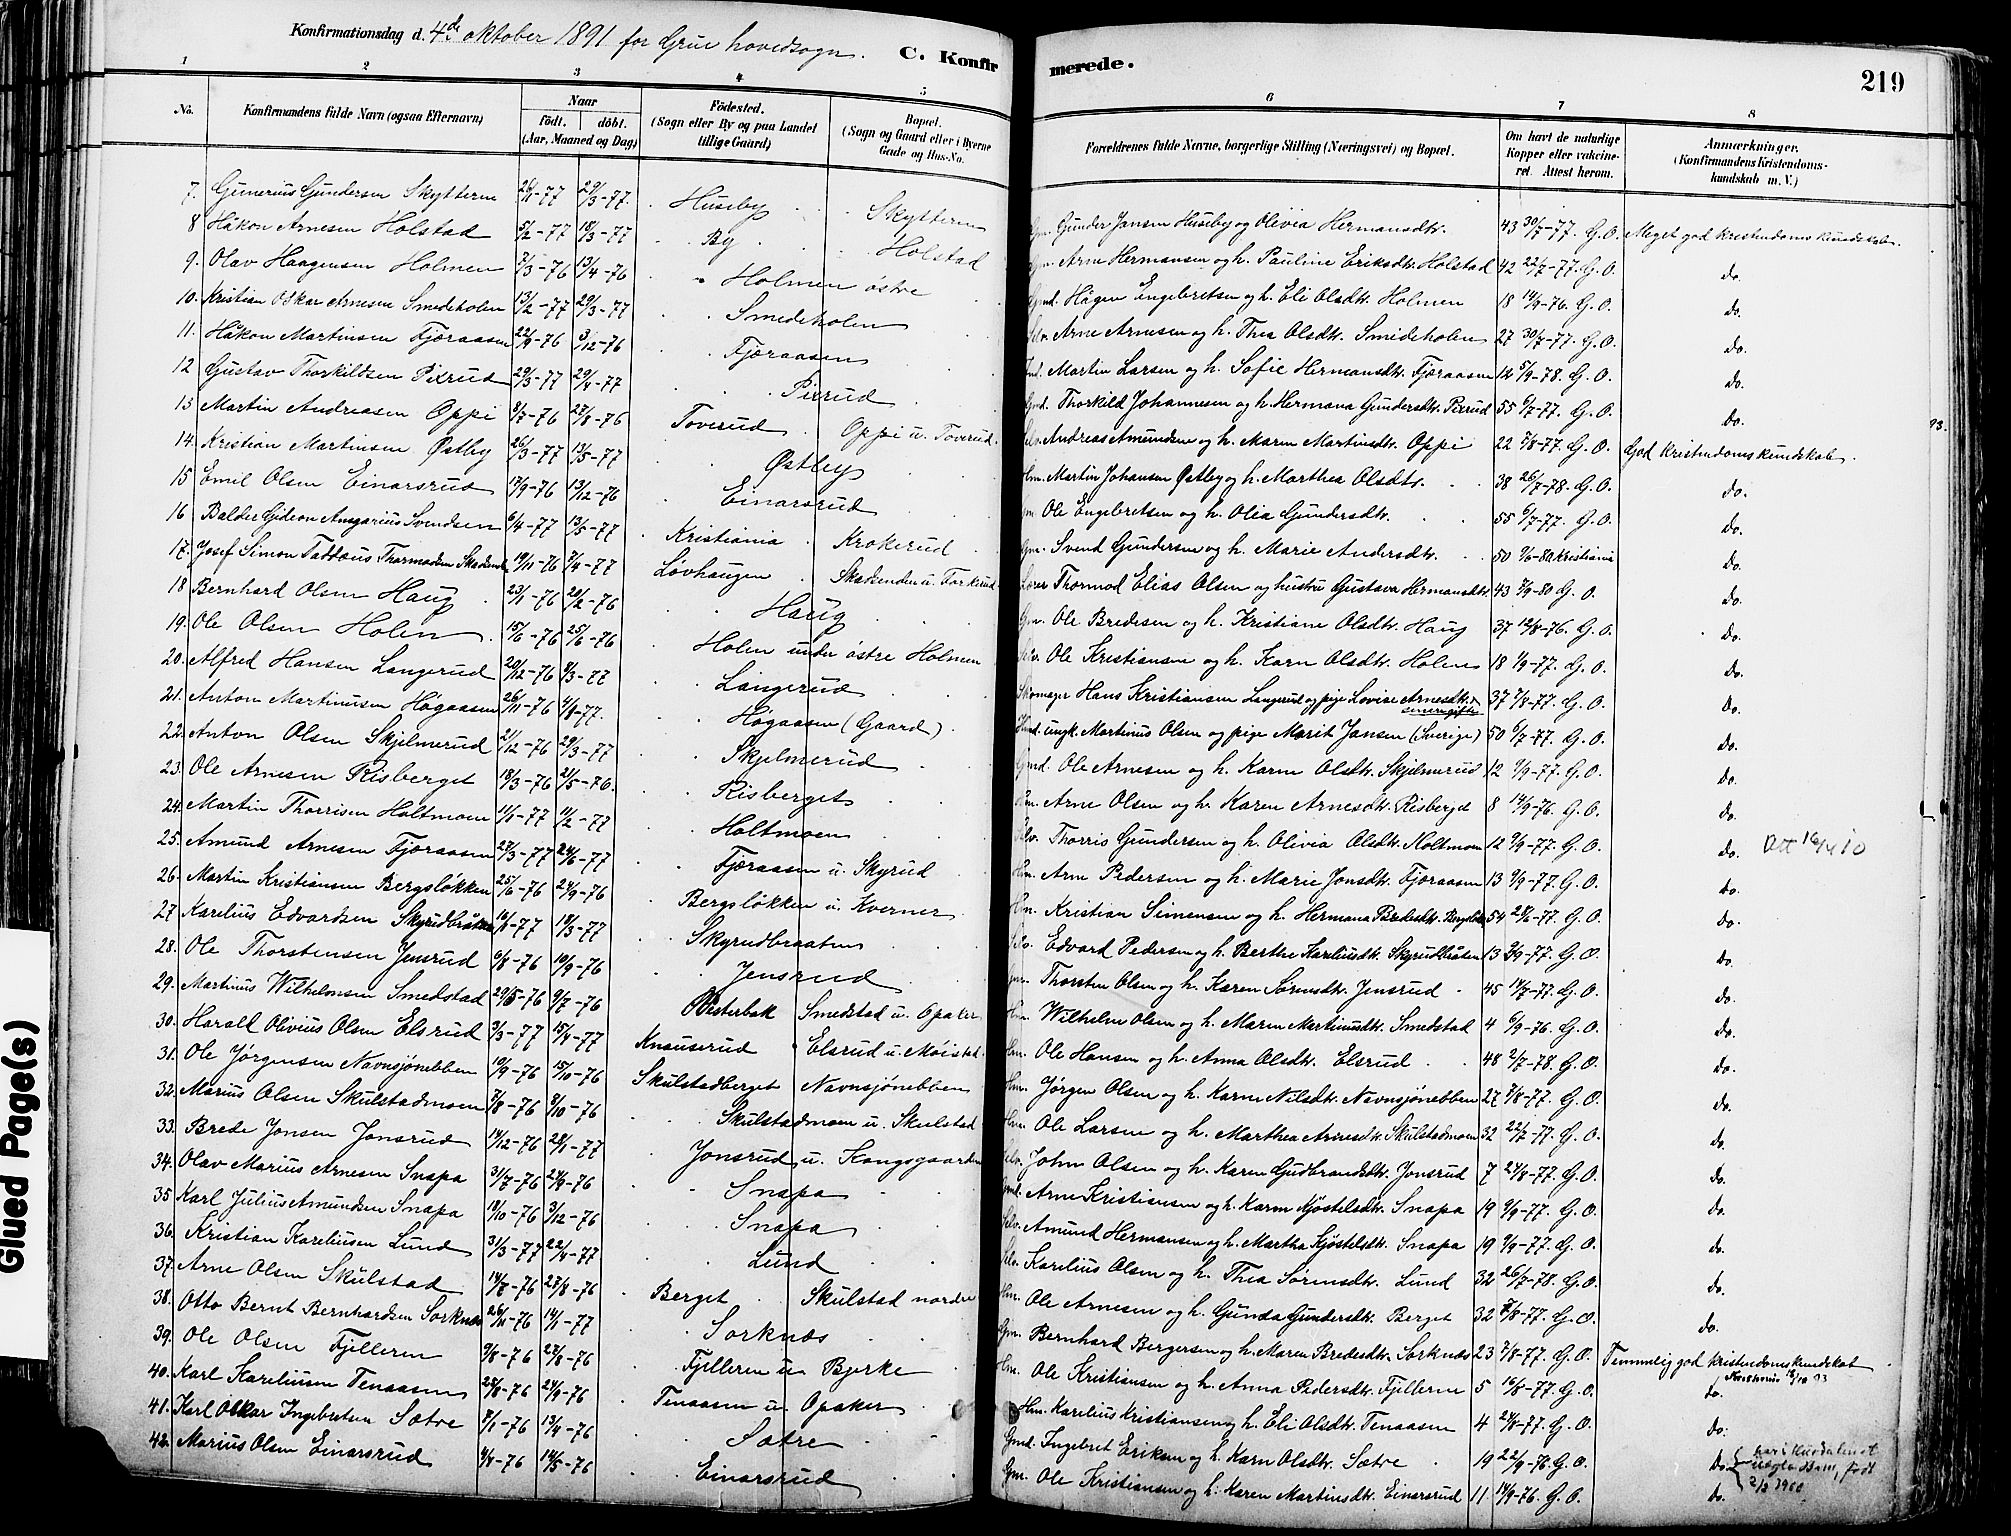 Konfirmationsdag d. 4de oktober 1891 for Grue hovedsogn. C. Konfirmerede. 219
1 2 3 4 5 6 7 8
No. Konfirmandens fulde Navn (ogsaa Efternavn) Naar födt. döbt. (Aar, Maaned og Dag) Födested. (Sogn eller By og paa Landet tillige Gaard) Bopæl. (Sogn og Gaard eller i Byerne Gade og Hus-No. Forældrenes fulde Navne, borgerlige Stilling (Næringsvei) og Bopæl. Om havt de naturlige Kopper eller vakcineret. Attest herom. Anmærkninger. (Konfirmandens Kristendomskundskab m. V.)
7. Gunerius Gundersen Skytteren 26/1-77 29/3-77. Huseby Skytteren Gm. Gunder Jansen Huseby og Olivia Hermansdtr. 43 30/7-77. G. O. Meget god kristendomskundskab.
8 Håkon Arnesen Holstad 5/2-77 18/3-77 By Holstad Gm. Arne Hermansen og h. Pauline Eriksdtr. Holstad 42 22/7-77. G. O. do.
9. Olav Haagensen Holmen 7/3-76 13/4-76 Holmen östre Gmd. Hågen Engebretsen og h. Eli Olsdtr. Holmen 18 14/9-76. G. O. do.
10. Kristian Oskar Arnesen Smedeholen 13/2-77 29/3-77 Smedeholen Selv. Arne Arnesen og h. Thea Olsdtr. Smedeholen 27 30/7-77. G. O. do.
11. Håkon Martinsen Fjøraasen 22/9-76 3/12-76 Fjøraasen Ind. Martin Larsen og h. Sofie Hermansdtr. Fjøraasen 12 5/9-78. G. O. do.
12 Gustav Thorkildsen Pixrud 29/3-77 29/4-77 Pixrud Gmd. Thorkild Johannesen og h. Hermana Gundersdtr. Pixrud 55 6/7-77. G. O. do.
13 Martin Andreasen Oppi 8/7-76 27/8-76 Toverud Oppi u. Toverud. Selv. Andreas Amundsen og h. Maren Martinsdtr. Oppi 22 7/8-77. G. O. God kristendomskundskab.
14. Kristian Martinsen Østby 26/3-77 13/5-77 Østby Hm. Martin Johansen Østby og h. Marthea Olsdtr. 38 26/7-78. G. O. do.
15 Emil Olsen Einarsrud 17/9-76 13/12-76 Einarsrud Gm. Ole Engebretsen og h. Olia Gundersdtr. 55 6/7-77. G. O. do.
16 Balder Gideon Ansgarius Svendsen 6/4-77 13/5-77 Kristiania Krokerud Gm. Svend Gundersen og h. Marie Andersdtr. 50 9/6-80 Kristiania do.
17. Josef Simon Taddæus Thormodsen Skasenden 19/11-76 2/4-77 Løvhaugen Skasenden u. Torkerud Lærer Thormod Elias Olsen og hustru Gustava Hermansdtr. 43 7/9-80 G. O. do.
18 Bernhard Olsen Haug 23/1-76 20/2-76 Haug Gm. Ole Bredesen og h. Kristiane Olsdtr. Haug 37 12/8-76. G. O. do.
19. Ole Olsen Holen 15/6-76 25/6-76 Holen under østre Holmen Selv. Ole Kristiansen og h. Karn Olsdtr. Holen 18 1/9-77. G. O. do.
20. Alfred Hansen Langerud 20/12-76 8/3-77 Langerud Skomager Hans Kristiansen Langerud og pige Lovise Arnesdtr. senere gifte 37 7/8-77. G. O. do.
21. Anton Martinusen Høgaasen 26/11-76 4/8-77. Høgaasen (Gaard) ungk. Martinus Olsen og pige Marit Jansen (Sverige) 50 6/7-77. G. O. do.
22. Anton Olsen Skjelmerud 21/12-76 29/3-77 Skjelmerud Gmd. Ole Arnesen og h. Karen Olsdtr. Skjelmerud 12 9/9-77. G. O. do.
23. Ole Arnesen Risberget 18/3-76 21/5-76. Risberget Hm. Arne Olsen og h. Karen Arnesdtr. Risberget 8 14/9-76. G. O. do.
24. Martin Thorrisen Holtmoen 11/1-77 11/2-77 Holtmoen Selv. Thorris Gundersen og h. Olivia Olsdtr. Holtmoen 12 9/9-77. G. O. do. Att 16/4 10
25. Amund Arnesen Fjøraasen 27/3-77 24/6-77 Fjøraasen u. Skyrud Hm. Arne Pedersen og h. Marie Jonsdtr. Fjøraasen 13 9/9-77. G. O. do.
26. Martin Kristiansen Bergsløkken 25/6-76 24/9-76 Bergsløkken u. Kverner Hm. Kristian Simensen og h. Hermana Bredesdtr. Bergsløkken 54 28/6-77. G. O. do.
27 Karelius Edvardsen Skyrudbråten 16/1-77 18/3-77 Skyrudbraaten Selv. Edvard Pedersen og h. Berthe Kareliusdtr. Skyrudbråten 13 3/9-77. G. O. do.
28. Ole Thorstensen Jensrud 6/8-76 10/9-76 Jensrud Gm. Thorsten Olsen og h. Karen Sørensdtr. Jensrud 45 14/7-77. G. O. do.
29. Martinus Wilhelmsen Smedstad 29/5-76 9/7-76 Vesterbæk Smedstad u. Opaker Hm. Wilhelm Olsen og h. Maren Martinusdtr. Smedstad 4 6/9-76. G. O. do.
30. Harald Olivius Olsen Elsrud 3/3-77 15/4-77 Knauserud Elsrud u. Møistad Hm. Ole Hansen og h. Anna Olsdtr. Elsrud 48 2/7-78. G. O. do.
31. Ole Jørgensen Navnsjønebben 10/9-76 15/10-76 Skulstadberget Navnsjönebben Hm. Jørgen Olsen og h. Karen Nilsdtr. Navnsjönebben 27 7/8-77. G. O. do.
32. Marius Olsen Skulstadmoen 7/8-76 8/10-76 Skulstadmoen u. Skulstad Hm. Ole Larsen og h. Marthea Arnesdtr. Skulstadmoen 32 22/7-77. G. O. do.
33. Brede Jonsen Jonsrud 14/12-76 28/1-77 Jonsrud u. Kongsgaarden Selv. John Olsen og h. Karen Gudbrandsdtr. Jonsrud 7 24/8-77. G. O. do.
34. Olav Marius Arnesen Snapa 31/7-76 24/9-76 Snapa Gmd. Arne Kristiansen og h. Karen Kjøstelsdtr. Snapa 19 9/9-77. G. O. do.
35 Karl Julius Amundsen Snapa 18/10-76 3/12-76 Snapa Selv. Amund Hermansen og h. Martha Kjøstelsdtr. Snapa 19 9/9-77. G. O. do.
36. Kristian Kareliusen Lund 31/3-77 22/4-77 Lund Selv. Karelius Olsen og h. Thea Sørensdtr. Lund 32 26/7-78. G. O. do.
37. Arne Olsen Skulstad 14/7-76 27/8-76 Berget Skulstad nordre Hm. Ole Arnesen og h. Gunda Gundersdtr. Berget 32 7/8-77. G. O. do.
38. Otto Bernt Bernhardsen Sorknæs 26/11-76 14/1-77 Sorknæs Gm. Bernhard Bergersen og h. Maren Bredesdtr. Sorknæs 23 7/8-77. G. O. Temmelig god kristendomskundskab
39. Ole Olsen Fjelleren 9/8-76 27/8-76 Fjelleren u Bjerke Hm. Ole Kristiansen og h. Anna Pedersdtr. Fjelleren 5 16/8-77. G. O. do.
40. Karl Kareliusen Tenaasen 28/8-76 24/9-76 Tenaasen u. Opaker Hm. Karelius Kristiansen og h. Eli Olsdtr. Tenaasen 4 28/8-77. G. O. do.
41. Karl Oskar Ingebretsen Sætre 7/1-76 13/4-76 Sætre Gmd. Ingebret Eriksen og h. Karn Olsdtr. Sætre 19 22/9-76. G. O. do.
42. Marius Olsen Einarsrud 4/4-76 14/5-76 Einarsrud Gm. Ole Kristiansen og h. Karen Martinsdtr. Einarsrud 11 14/9-76. G. O. do.
93.
Glued Page(s)